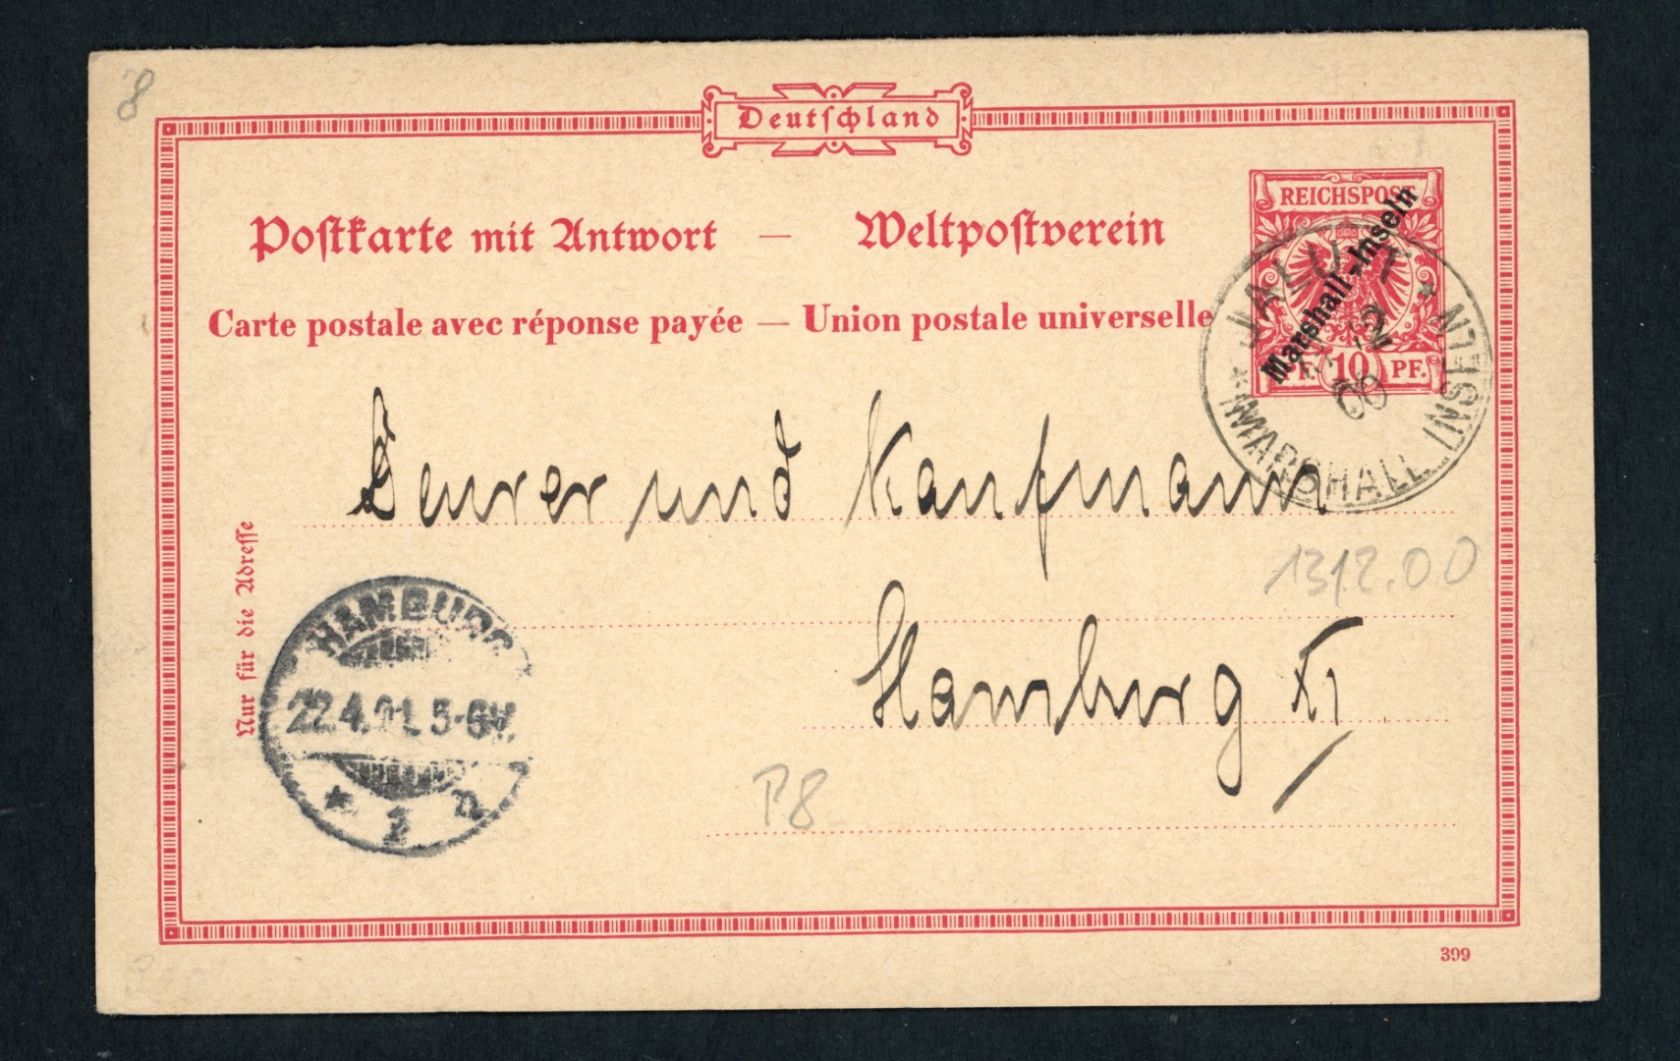 8
Deutschland
REICHSPOST
Marshall-Inseln
PF. 10 PF.
Postkarte mit Antwort — Weltpostverein
Carte postale avec réponse payée — Union postale universelle
JALUIT
13
12
00
* MARSHALL INSELN *
Deurer und Kaufmann
13 12.00
Nur für die Adresse
Hamburg XI
HAMBURG
22.4.01. 5-6N.
* 1 n
P8
399